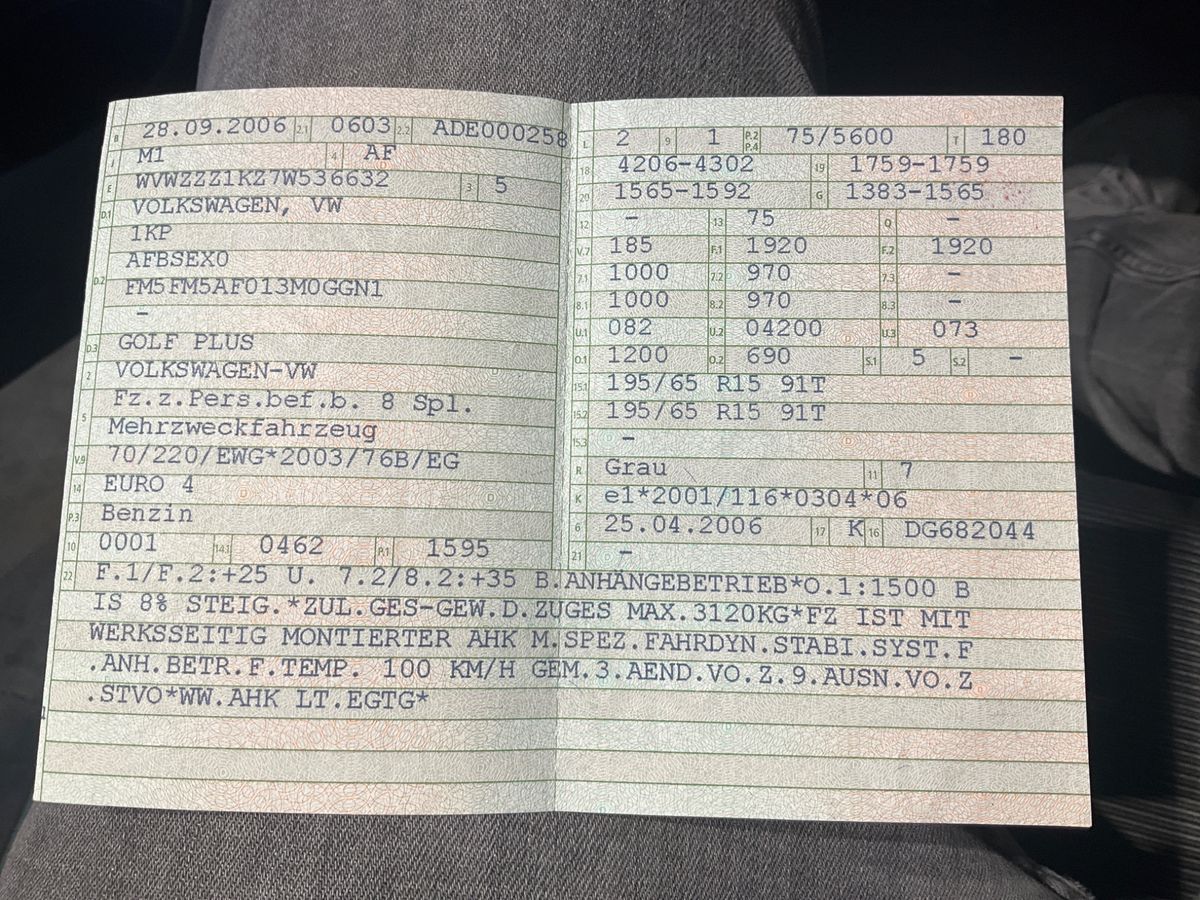 B 28.09.2006 2.1 0603 2.2 ADE000258
J M1 4 AF
E WVWZZZ1KZ7W536632 3 5
D.1 VOLKSWAGEN, VW
1KP
D.2 AFBSEX0
FM5FM5AF013M0GGN1
–
D.3 GOLF PLUS
2 VOLKSWAGEN-VW
5 Fz.z.Pers.bef.b. 8 Spl.
Mehrzweckfahrzeug
V.9 70/220/EWG*2003/76B/EG
14 EURO 4
P.3 Benzin
10 0001 14.1 0462 P.1 1595
L 2 9 1 P.2 P.4 75/5600 T 180
18 4206-4302 19 1759-1759
20 1565-1592 G 1383-1565
12 – 13 75 Q –
V.7 185 F.1 1920 F.2 1920
7.1 1000 7.2 970 7.3 –
8.1 1000 8.2 970 8.3 –
U.1 082 U.2 04200 U.3 073
O.1 1200 O.2 690 S.1 5 S.2 –
15.1 195/65 R15 91T
15.2 195/65 R15 91T
15.3 –
R Grau 11 7
K e1*2001/116*0304*06
6 25.04.2006 17 K 16 DG682044
21 –
22 F.1/F.2:+25 U. 7.2/8.2:+35 B.ANHÄNGEBETRIEB*O.1:1500 B
IS 8% STEIG.*ZUL.GES-GEW.D.ZUGES MAX.3120KG*FZ IST MIT
WERKSSEITIG MONTIERTER AHK M.SPEZ.FAHRDYN.STABI.SYST.F
.ANH.BETR.F.TEMP. 100 KM/H GEM.3.AEND.VO.Z.9.AUSN.VO.Z
.STVO*WW.AHK LT.EGTG*